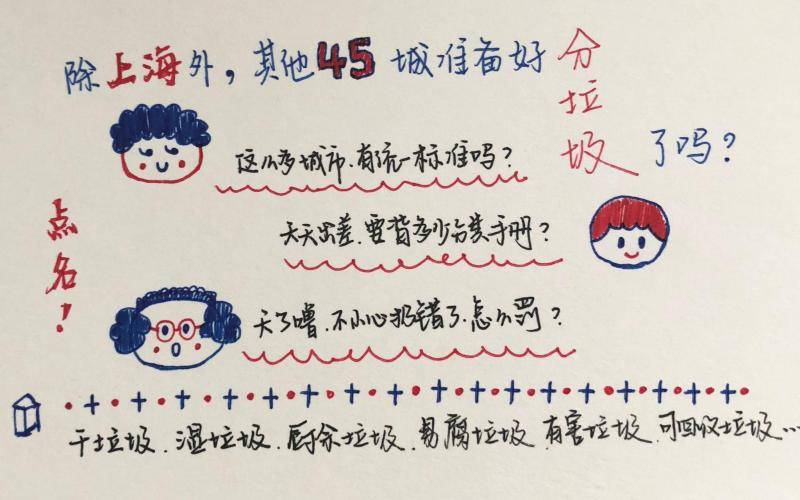 除上海外，其他45城准备好分垃圾了吗？
这么多城市，有统一标准吗？
点名！
天天出差，要背多少分类手册？
天了噜，不小心扔错了，怎么罚？
干垃圾、湿垃圾、厨余垃圾、易腐垃圾、有害垃圾、可回收垃圾…